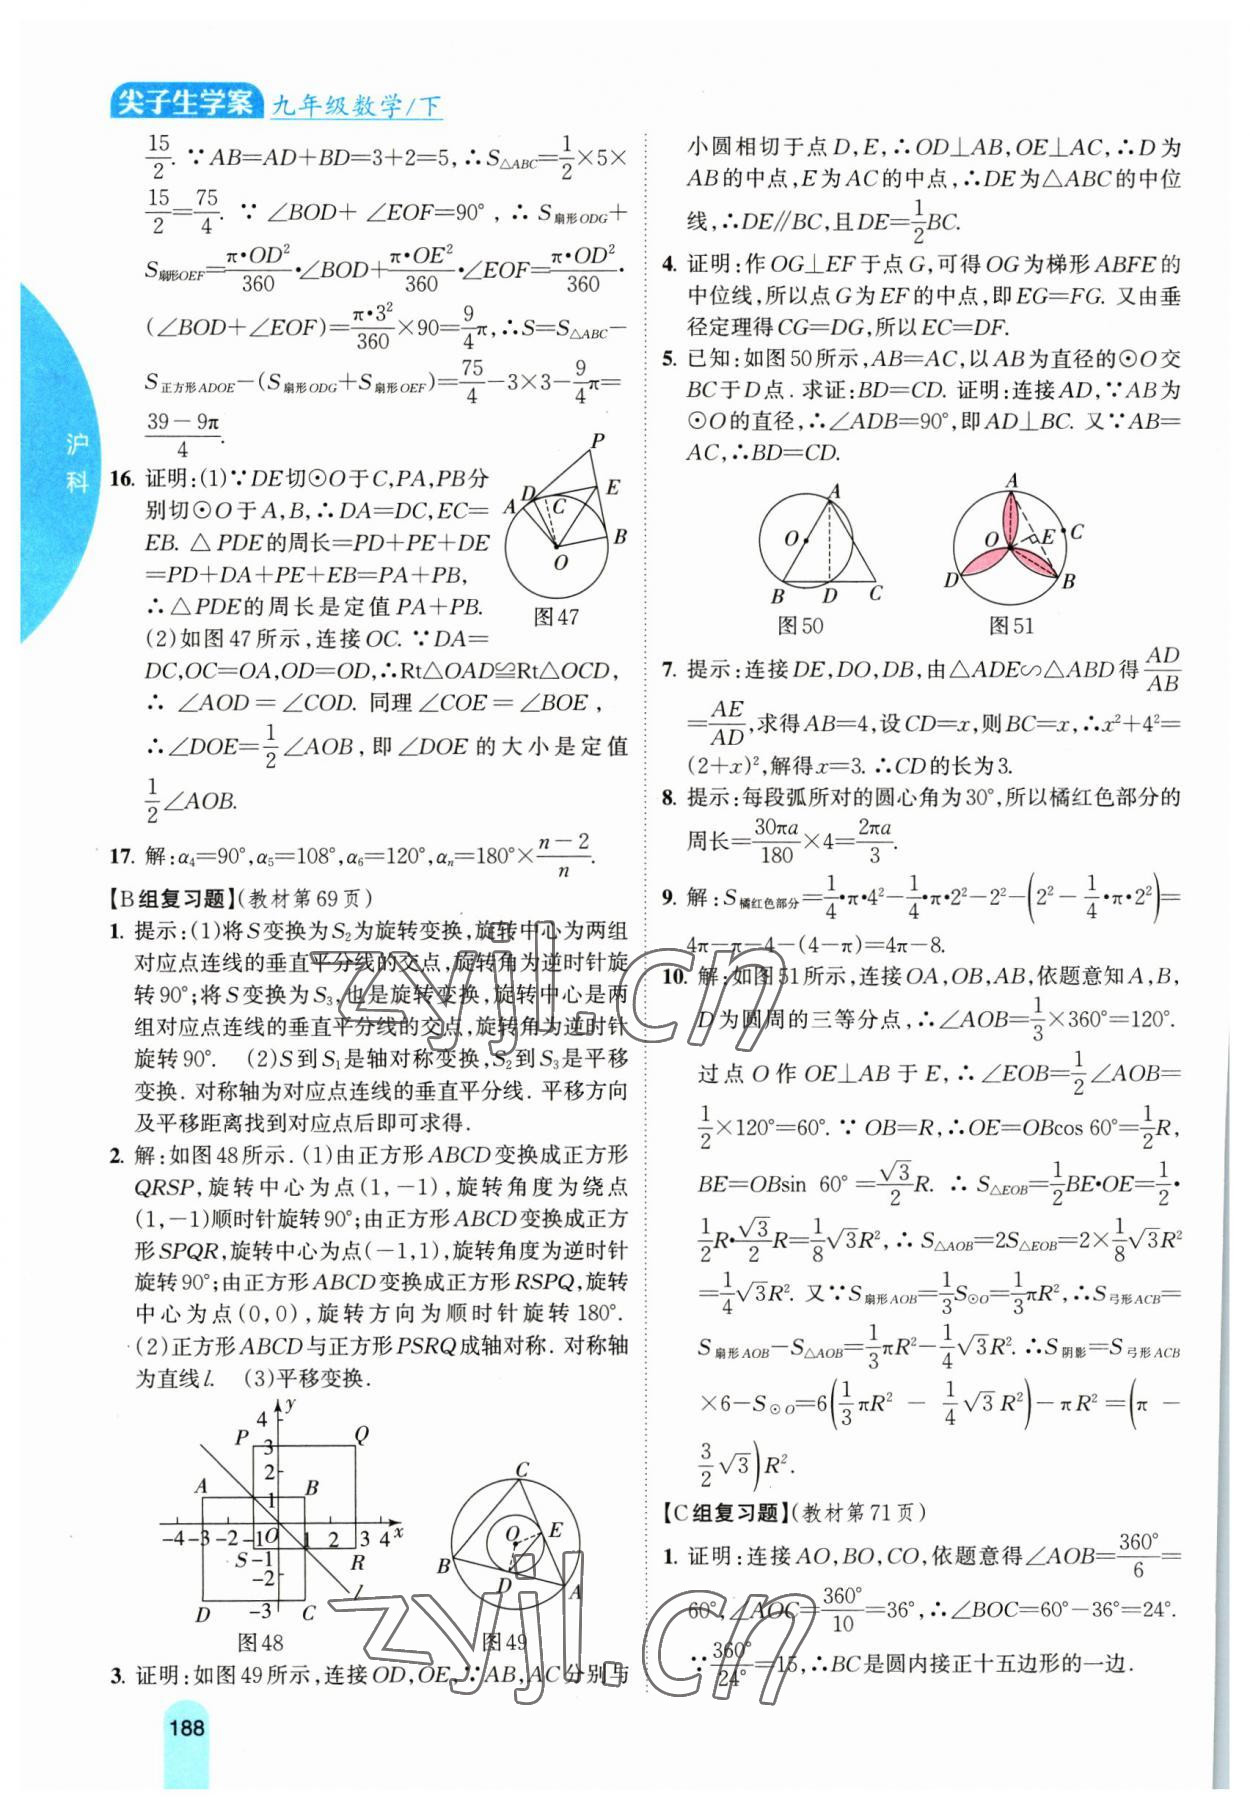 尖子生学案 九年级数学/下
沪科
15/2. ∵AB=AD+BD=3+2=5,∴S△ABC=1/2×5×
15/2=75/4. ∵∠BOD+∠EOF=90°,∴S扇形ODG+
S扇形OEF=π•OD²/360•∠BOD+π•OE²/360•∠EOF=π•OD²/360•
(∠BOD+∠EOF)=π•3²/360×90=9/4π,∴S=S△ABC-
S正方形ADOE-(S扇形ODG+S扇形OEF)=75/4-3×3-9/4π=
39-9π/4.
16. 证明:(1)∵DE切⊙O于C,PA,PB分
别切⊙O于A,B,∴DA=DC,EC=
EB. △PDE的周长=PD+PE+DE
=PD+DA+PE+EB=PA+PB,
∴△PDE的周长是定值PA+PB.
(2)如图47所示,连接OC. ∵DA=
DC,OC=OA,OD=OD,∴Rt△OAD≌Rt△OCD,
∴∠AOD=∠COD. 同理∠COE=∠BOE,
∴∠DOE=1/2∠AOB,即∠DOE的大小是定值
1/2∠AOB.
P
D
E
A
C
B
O
图47
17. 解:α₄=90°,α₅=108°,α₆=120°,αₙ=180°×n-2/n.
【B组复习题】(教材第69页)
1. 提示:(1)将S变换为S₂为旋转变换,旋转中心为两组
对应点连线的垂直平分线的交点,旋转角为逆时针旋
转90°;将S变换为S₃,也是旋转变换,旋转中心是两
组对应点连线的垂直平分线的交点,旋转角为逆时针
旋转90°. (2)S到S₁是轴对称变换,S₂到S₃是平移
变换. 对称轴为对应点连线的垂直平分线. 平移方向
及平移距离找到对应点后即可求得.
2. 解:如图48所示. (1)由正方形ABCD变换成正方形
QRSP,旋转中心为点(1,-1),旋转角度为绕点
(1,-1)顺时针旋转90°;由正方形ABCD变换成正方
形SPQR,旋转中心为点(-1,1),旋转角度为逆时针
旋转90°;由正方形ABCD变换成正方形RSPQ,旋转
中心为点(0,0),旋转方向为顺时针旋转180°.
(2)正方形ABCD与正方形PSRQ成轴对称. 对称轴
为直线l. (3)平移变换.
y
4
P 3 Q
2
A 1 B
-4 -3 -2 -1 O 1 2 3 4 x
S -1 R
-2
l
D -3 C
图48
C
O E
B
D
A
图49
3. 证明:如图49所示,连接OD,OE,∵AB,AC分别与
小圆相切于点D,E,∴OD⊥AB,OE⊥AC,∴D为
AB的中点,E为AC的中点,∴DE为△ABC的中位
线,∴DE∥BC,且DE=1/2BC.
4. 证明:作OG⊥EF于点G,可得OG为梯形ABFE的
中位线,所以点G为EF的中点,即EG=FG. 又由垂
径定理得CG=DG,所以EC=DF.
5. 已知:如图50所示,AB=AC,以AB为直径的⊙O交
BC于D点. 求证:BD=CD. 证明:连接AD,∵AB为
⊙O的直径,∴∠ADB=90°,即AD⊥BC. 又∵AB=
AC,∴BD=CD.
A
O
B D C
图50
A
O E C
D B
图51
7. 提示:连接DE,DO,DB,由△ADE∽△ABD得AD/AB
=AE/AD,求得AB=4,设CD=x,则BC=x,∴x²+4²=
(2+x)²,解得x=3. ∴CD的长为3.
8. 提示:每段弧所对的圆心角为30°,所以橘红色部分的
周长=30πa/180×4=2πa/3.
9. 解:S橘红色部分=1/4•π•4²-1/4•π•2²-2²-(2²-1/4•π•2²)=
4π-π-4-(4-π)=4π-8.
10. 解:如图51所示,连接OA,OB,AB,依题意知A,B,
D为圆周的三等分点,∴∠AOB=1/3×360°=120°.
过点O作OE⊥AB于E,∴∠EOB=1/2∠AOB=
1/2×120°=60°. ∵OB=R,∴OE=OBcos 60°=1/2R,
BE=OBsin 60°=√3/2R. ∴S△EOB=1/2BE•OE=1/2•
1/2R•√3/2R=1/8√3R²,∴S△AOB=2S△EOB=2×1/8√3R²
=1/4√3R². 又∵S扇形AOB=1/3S⊙O=1/3πR²,∴S弓形ACB=
S扇形AOB-S△AOB=1/3πR²-1/4√3R². ∴S阴影=S弓形ACB
×6-S⊙O=6(1/3πR²-1/4√3R²)-πR²=(π-
3/2√3)R².
【C组复习题】(教材第71页)
1. 证明:连接AO,BO,CO,依题意得∠AOB=360°/6=
60°,∠AOC=360°/10=36°,∴∠BOC=60°-36°=24°.
∵360°/24°=15,∴BC是圆内接正十五边形的一边.
188
zyjl.cn
zyjl.cn